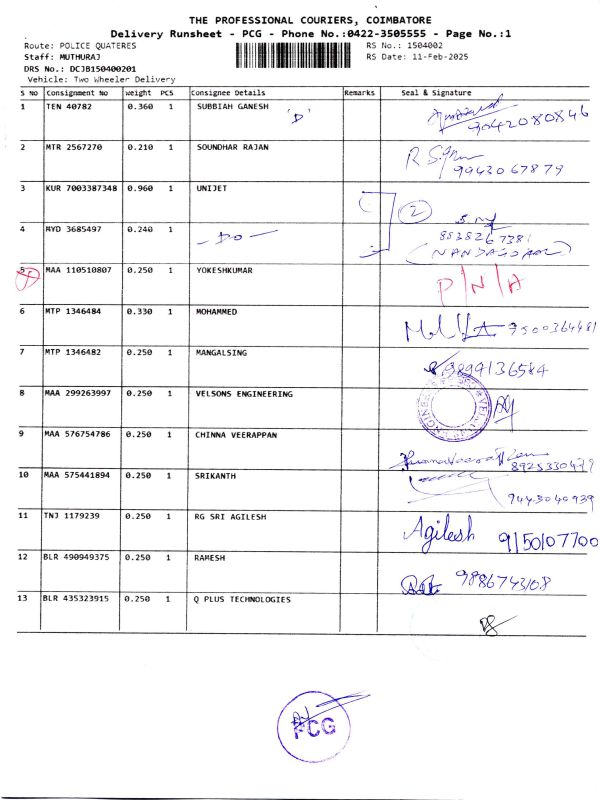 THE PROFESSIONAL COURIERS, COIMBATORE
Delivery Runsheet - PCG - Phone No.:0422-3505555 - Page No.:1
Route: POLICE QUATERES RS No.: 1504002
Staff: MUTHURAJ RS Date: 11-Feb-2025
DRS No.: DCJB150400201
Vehicle: Two Wheeler Delivery
S No Consignment No Weight PCS Consignee Details Remarks Seal & Signature
1 TEN 40782 0.360 1 SUBBIAH GANESH 'D' 9042080846
2 MTR 2567270 0.210 1 SOUNDHAR RAJAN 9943067879
3 KUR 7003387348 0.960 1 UNIJET 2
4 MYD 3685497 0.240 1 -DO- 8838267381
(NANDAGOPAL)
5 MAA 110510807 0.250 1 YOKESHKUMAR P/N/A
6 MTP 1346484 0.330 1 MOHAMMED 9500364481
7 MTP 1346482 0.250 1 MANGALSING 9894136584
8 MAA 299263997 0.250 1 VELSONS ENGINEERING
9 MAA 576754786 0.250 1 CHINNA VEERAPPAN 8925330479
10 MAA 575441894 0.250 1 SRIKANTH 9443040939
11 TNJ 1179239 0.250 1 RG SRI AGILESH Agilesh 9150107700
12 BLR 490949375 0.250 1 RAMESH 9886743108
13 BLR 435323915 0.250 1 Q PLUS TECHNOLOGIES
PCG